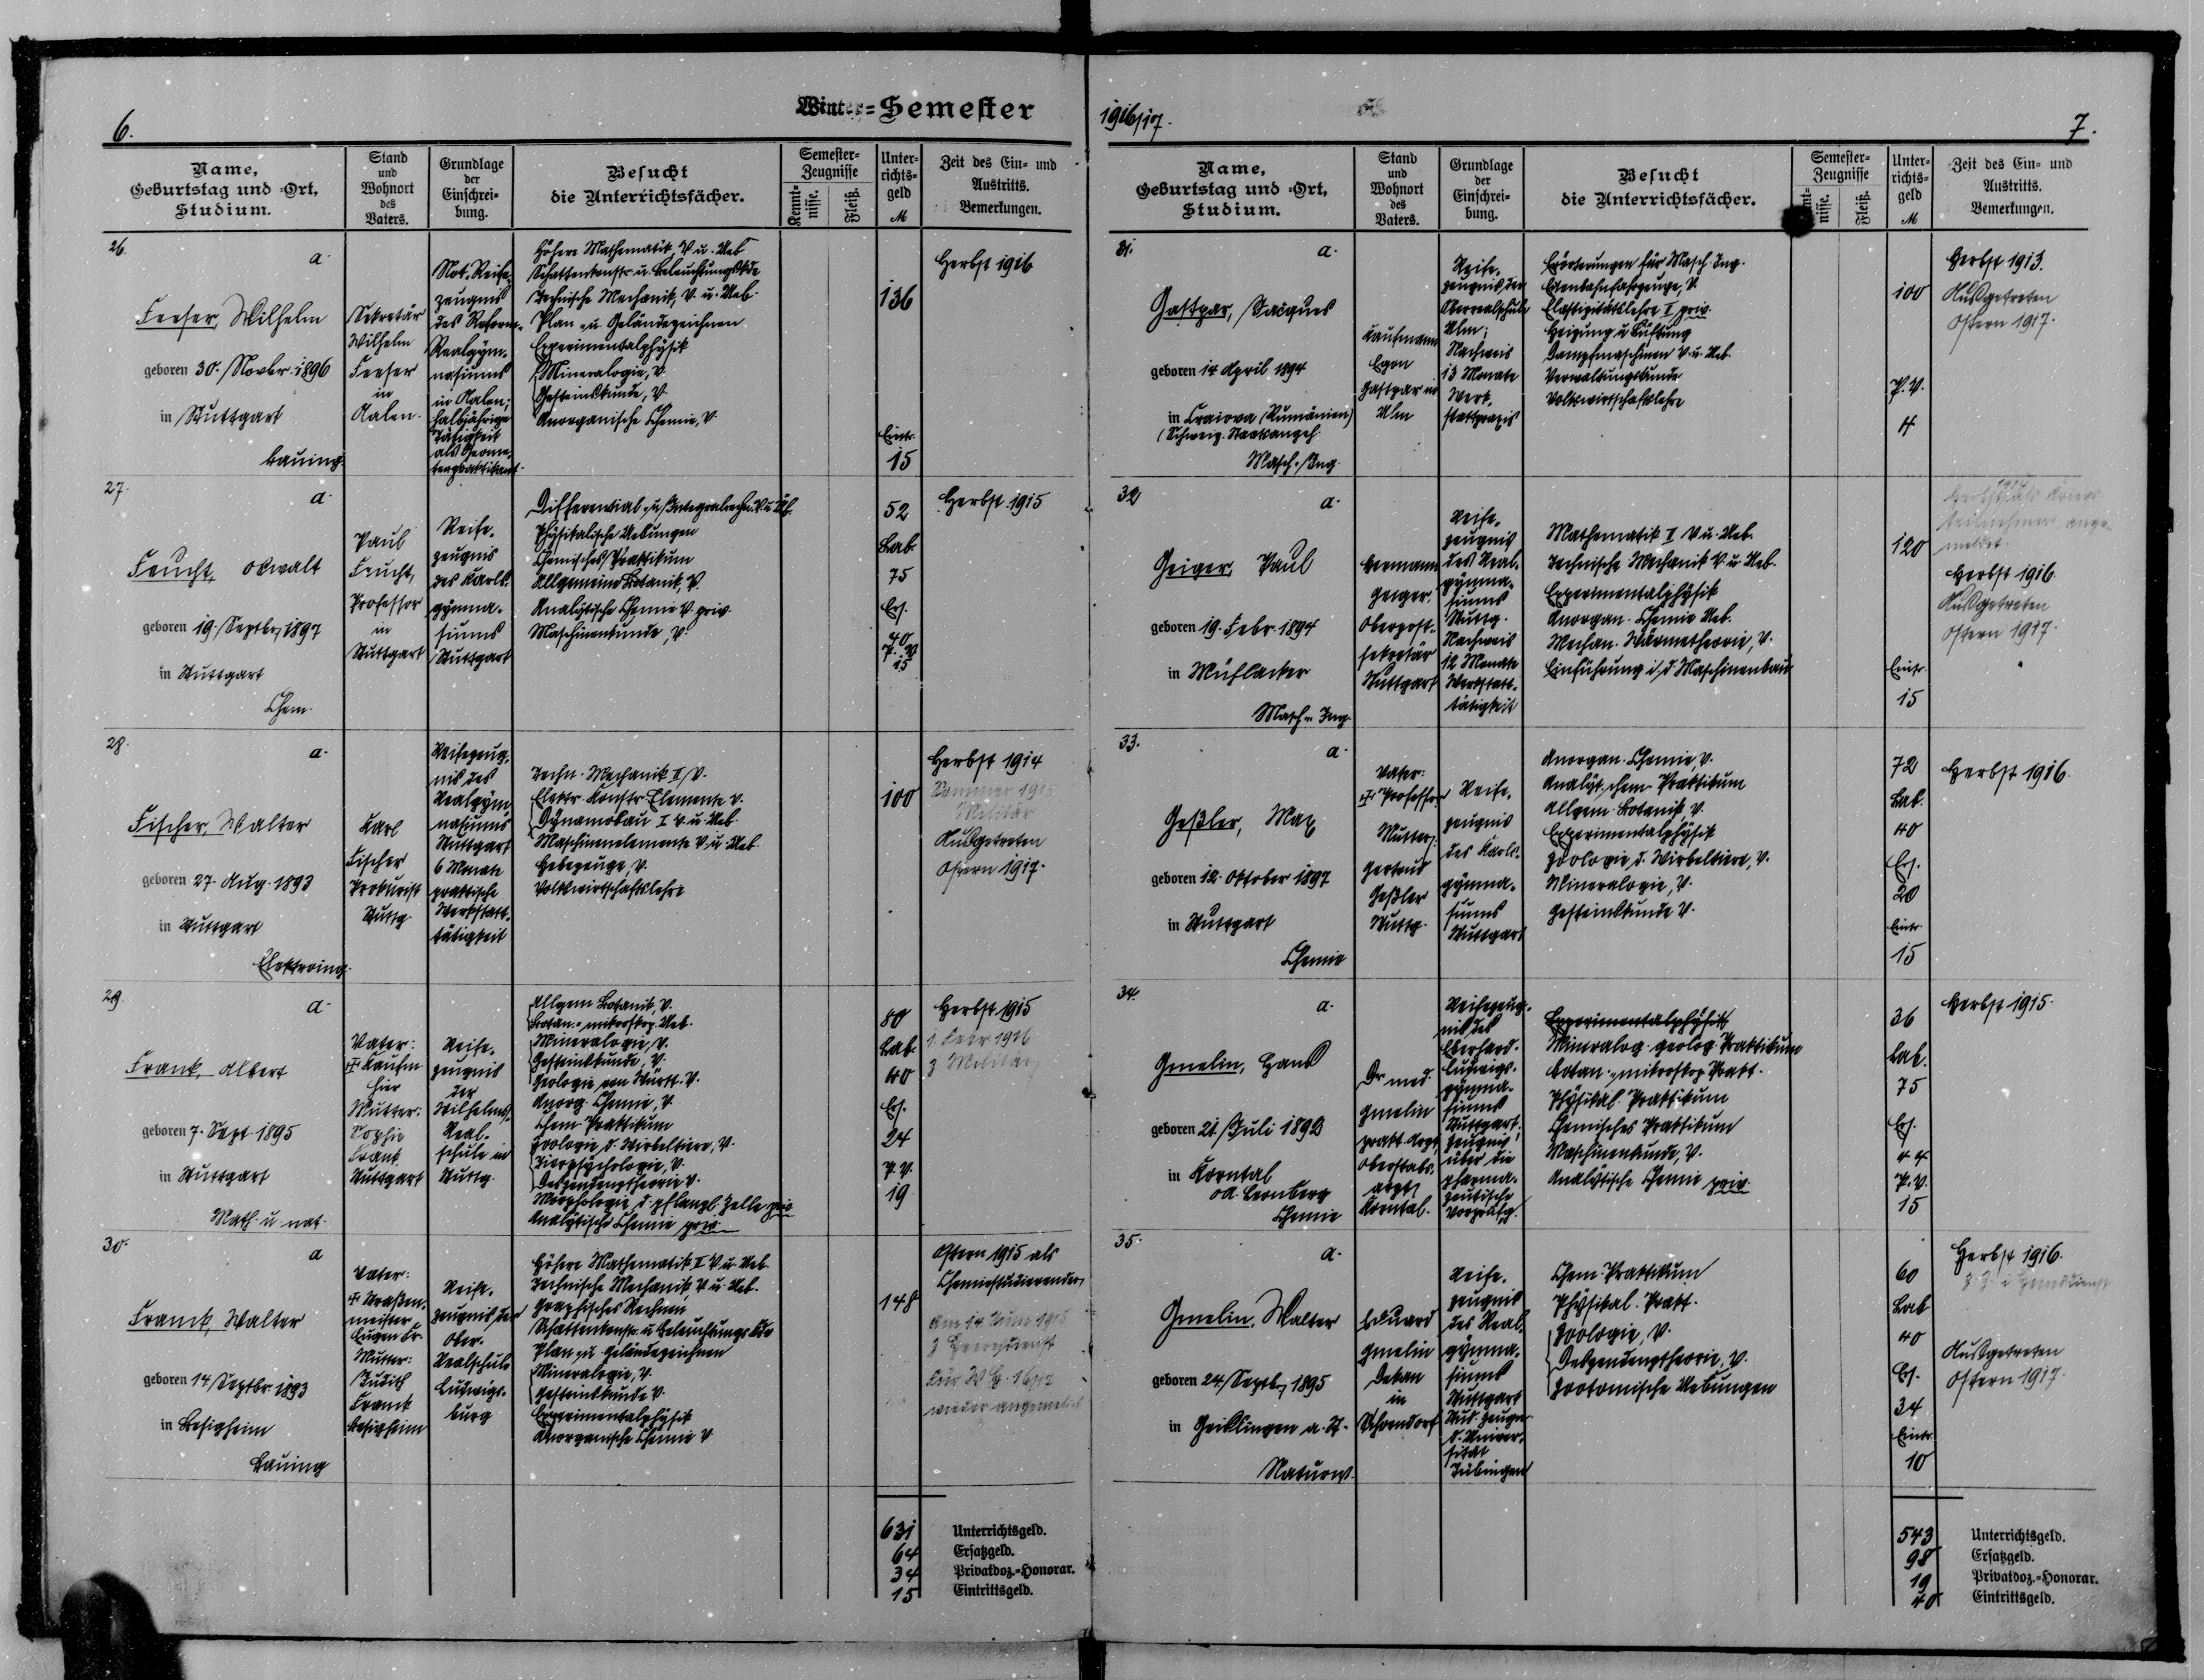 Winter-Semester
1916/17.
6.
Name,
Geburtstag und -Ort,
Studium.
Stand
und
Wohnort
des
Vaters.
Grundlage
der
Einschrei-
bung.
Besucht
die Unterrichtsfächer.
Semester-
Zeugnisse
Kennt-
nisse.
Fleiß.
Unter-
richts-
geld
M
Zeit des Ein- und
Austritts.
Bemerkungen.
26.
a.
Feeser, Wilhelm
geboren 30. Novbr. 1896
in Stuttgart
Bauing.
Sekretär
Wilhelm
Feeser
in
Aalen.
Not-Reife-
zeugnis
des Reform-
Realgym-
nasiums
in Aalen;
halbjährige
Tätigkeit
als Geome-
terpraktikant.
Höhere Mathematik, V. u. Ueb.
Schattenkonstr. u. Beleuchtungskde
Technische Mechanik, V. u. Ueb.
Plan- u. Geländezeichnen
Experimentalphysik
Mineralogie, V.
Gesteinskunde, V.
Anorganische Chemie, V.
136
Eintr.
15
Herbst 1916
27.
a.
Feucht, Oswalt
geboren 19. Septbr. 1897
in Stuttgart
Chem.
Paul
Feucht,
Professor
in
Stuttgart
Reife-
zeugnis
des Karls-
gymna-
siums
Stuttgart
Differential- u. Integralrechn. V. u. Üb.
Physikalische Uebungen
Chemisches Praktikum
Allgemeine Botanik, V.
Analytische Chemie V. priv.
Maschinenkunde, V.
52
Lab.
75
Ers.
40
P. V.
15
Herbst 1915
28.
a.
Fischer, Walter
geboren 27. Aug. 1893
in Stuttgart
Elektroing.
Karl
Fischer
Prokurist
Stuttg.
Reifezeug-
nis des
Realgym-
nasiums
Stuttgart
6 Monate
praktische
Werkstatt-
tätigkeit
Techn. Mechanik II V.
Elektr. Konstr. Elemente V.
Dynamobau I V. u. Ueb.
Maschinenelemente V. u. Ueb.
Hebezeuge, V.
Volkswirtschaftslehre
100
Herbst 1914
Sommer 1915
Militär
Ausgetreten
Ostern 1917.
29.
a.
Frank, Albert
geboren 7. Sept. 1895
in Stuttgart
Math. u. nat.
Vater:
✠ Kaufm.
hier
Mutter:
Sophie
Frank
Stuttgart
Reife-
zeugnis
der
Wilhelms-
Real-
schule in
Stuttg.
Allgem. Botanik, V.
Botan.-mikroskop. Ueb.
Mineralogie, V.
Gesteinskunde, V.
Geologie von Württ. V.
Anorg. Chemie, V.
Chem. Praktikum
Zoologie d. Wirbeltiere, V.
Tierpsychologie, V.
Deszendenztheorie V.
Morphologie d. pflanzl. Zelle priv.
Analytische Chemie priv.
80
Lab.
40
Ers.
24
P. V.
19
Herbst 1915
1. Febr. 1916
z. Militär
30.
a
Franck, Walter
geboren 14. Septbr. 1893
in Besigheim
Bauing
Vater:
✠ Straßen-
meister
Eugen Fr.
Mutter:
Judith
Franck
Besigheim
Reife-
zeugnis der
Ober-
Realschule
Ludwigs-
burg
Höhere Mathematik I V. u. Ueb.
Technische Mechanik, V. u. Ueb.
Graphisches Rechnen
Schattenkonstr. u. Beleuchtungskde
Plan- u. Geländezeichnen
Mineralogie, V.
Gesteinskunde V.
Experimentalphysik
Anorganische Chemie V
148
Ostern 1915 als
Chemiestudierender
Am 14. Juni 1915
z. Heeresdienst
wieder angemeldet
631 Unterrichtsgeld.
64 Ersatzgeld.
34 Privatdoz.-Honorar.
15 Eintrittsgeld.
7.
Name,
Geburtstag und -Ort,
Studium.
Stand
und
Wohnort
des
Vaters.
Grundlage
der
Einschrei-
bung.
Besucht
die Unterrichtsfächer.
Semester-
Zeugnisse
nisse.
Fleiß.
Unter-
richts-
geld
M
Zeit des Ein- und
Austritts.
Bemerkungen.
31.
a.
Gastpar, Jacques
geboren 14. April 1894
in Craiova (Rumänien)
(Schweiz. Staatsangeh.
Masch.-Ing.
Kaufmann
Egon
Gastpar in
Ulm
Reife-
zeugnis der
Oberrealschule
Ulm;
Nachweis
13 Monate
Werk-
stattpraxis
Erörterungen für Masch. Ing.
Eisenbahnfahrzeuge, V.
Elastizitätslehre I priv.
Heizung u. Lüftung
Dampfmaschinen V. u. Ueb.
Verwaltungskunde
Volkswirtschaftslehre
100
P. V.
4
Herbst 1913.
Ausgetreten
Ostern 1917.
32
a.
Geiger, Paul
geboren 19. Febr. 1894
in Mühlacker
Masch. Ing.
Hermann
Geiger,
Oberpost-
sekretär
Stuttgart
Reife-
zeugnis
des Real-
gymna-
siums
Stuttg.
Nachweis
12 Monate
Werkstatt-
tätigkeit
Mathematik I V. u. Ueb.
Technische Mechanik V. u. Ueb.
Experimentalphysik
Anorgan. Chemie Ueb.
Mechan. Wärmetheorie, V.
Einführung i. d. Maschinenbau
120
Eintr.
15
teilnehmer ange-
meldet.
Herbst 1916.
Ausgetreten
Ostern 1917.
33.
a.
Geßler, Max
geboren 12. Oktober 1897
in Stuttgart
Chemie
Vater:
✠ Professor
Mutter:
Gertrud
Geßler
Stuttg.
Reife-
zeugnis
des Karls-
gymna-
siums
Stuttgart
Anorgan. Chemie, V.
Analyt. chem. Praktikum
Allgem. Botanik, V.
Experimentalphysik
Zoologie, d. Wirbeltiere, V.
Mineralogie, V.
Gesteinskunde V.
72
Lab.
40
Ers.
20
Eintr.
15
Herbst 1916.
34.
a.
Gmelin, Hans
geboren 21. Juli 1892
in Korntal
OA. Leonberg
Chemie
Dr med.
Gmelin
prakt. Arzt,
Oberstabs-
arzt
Korntal.
Reifezeug-
nis des
Eberhard-
Ludwigs-
gymna-
siums
Stuttgart;
Zeugnis
über die
pharma-
zeutische
Vorprüfg.
Experimentalphysik
Mineralog. geolog. Praktikum
Botan.-mikroskop. Prakt.
Physikal. Praktikum
Chemisches Praktikum
Maschinenkunde, V.
Analytische Chemie priv.
36
Lab.
75
Ers.
44
P. V.
15
Herbst 1915.
35.
a.
Gmelin, Walter
geboren 24. Septbr. 1895
in Geislingen a. St.
Naturw.
Eduard
Gmelin
Dekan
in
Schorndorf
Reife-
zeugnis
des Real-
gymna-
siums
Stuttgart
Stud. Zeugn.
d. Univer-
sität
Tübingen
Chem. Praktikum
Physikal. Prakt.
Zoologie, V.
Deszendenztheorie, V.
Zootomische Uebungen
60
Lab
40
Ers.
34
Eintr.
10
Herbst 1916.
z. Z. i. Heeresdienst
Ausgetreten
Ostern 1917.
543 Unterrichtsgeld.
98 Ersatzgeld.
19 Privatdoz.-Honorar.
40 Eintrittsgeld.